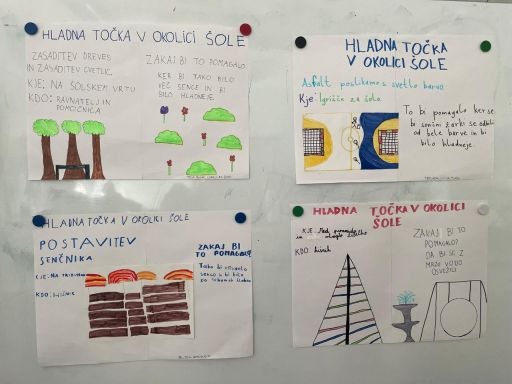 HLADNA TOČKA V OKOLICI ŠOLE
ZASADITEV DREVES
IN ZASADITEV CVETLIC.
KJE: NA ŠOLSKEM VRTU
KDO: RAVNATELJ IN
POMOČNICA
ZAKAJ BI TO POMAGALO
KER BI TAKO BILO
VEČ SENCE IN BI
BILO HLADNEJE.
HLADNA TOČKA
V OKOLICI ŠOLE
Asfalt poslikamo s svetlo barvo
Kje: Igrišče za šolo
To bi pomagalo ker se
bi sončni žarki se odbili
od bele barve in bi
bilo hladneje.
HLADNA TOČKA V OKOLICI ŠOLE
POSTAVITEV
SENČNIKA
KJE: NA
KDO: HIŠNIK
ZAKAJ BI
TO POMAGALO
Tako bi
senco in bi bilo
za
HLADNA TOČKA V OKOLICI
ŠOLE
KJE: Med
in
KDO: hišnik
ZAKAJ BI TO
POMAGALO?
DA BI SE Z
MRZLO VODO
OSVEŽILI